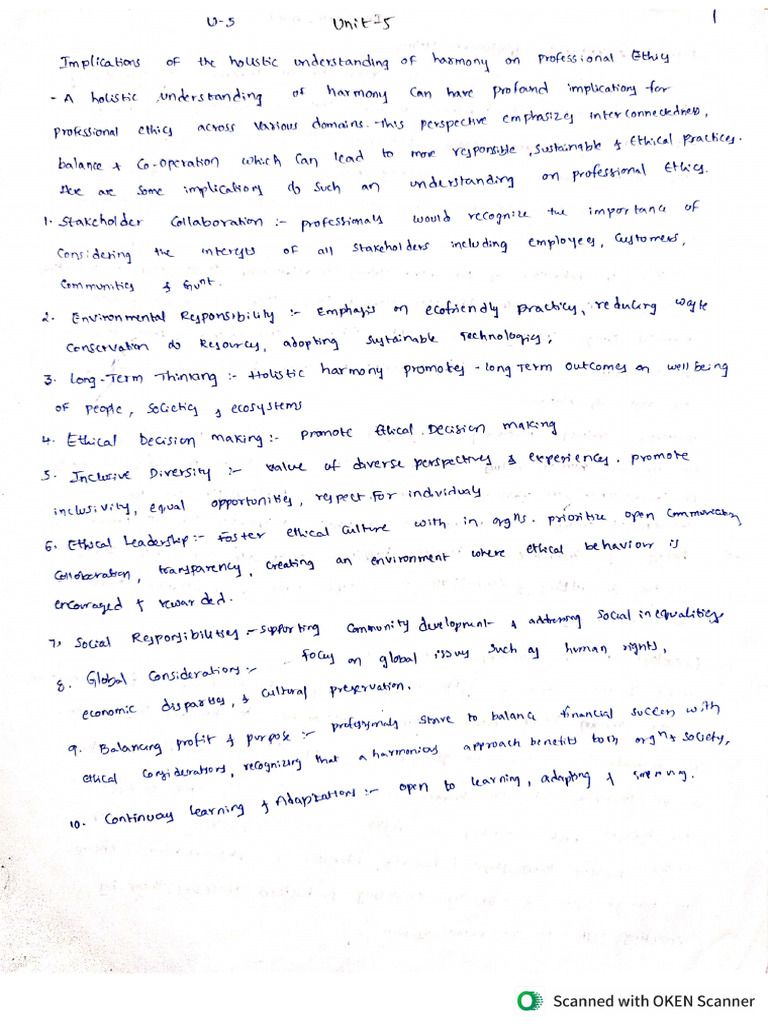 U-5 Unit-5 1
Implications of the holistic understanding of harmony on Professional Ethics
- A holistic understanding of harmony can have profand implications for
professional ethics across various domains. This perspective emphasizes interconnectedness,
balance & Co-operation which can lead to more responsible, sustainable & Ethical practices.
Here are some implications of such an understanding on professional Ethics.
1. Stakeholder Collaboration :- professionals would recognize the importance of
Considering the interests of all stakeholders including employees, customers,
Communities & Gunt.
2. Environmental Responsibility :- Emphasis on ecofriendly practices, reducing waste
Conservation of Resources, adopting sustainable Technologies;
3. Long-Term Thinking :- Holistic harmony promotes - long Term outcomes on well being
of people, societies & ecosystems
4. Ethical Decision making :- promote Ethical Decision making
5. Inclusive Diversity :- value of diverse perspectives & experiences. promote
inclusivity, equal opportunities, respect for individuals
6. Ethical Leadership :- Foster ethical culture with in orgns. prioritize open communication
Colloberation, transparency, creating an environment where ethical behaviour is
encouraged & rewarded.
7, Social Responsibilities :- supporting Community development & addressing social inequalities
8. Global Considerations :- Focus on global issues such as human rights,
economic disparties, & cultural preservation.
9. Balancing profit & purpose :- professionals strive to balance financial success with
ethical considerations, recognizing that a harmonious approach benefits both orgn & society,
10. Continuous Learning & Adaptations :- open to learning, adapting &
Scanned with OKEN Scanner